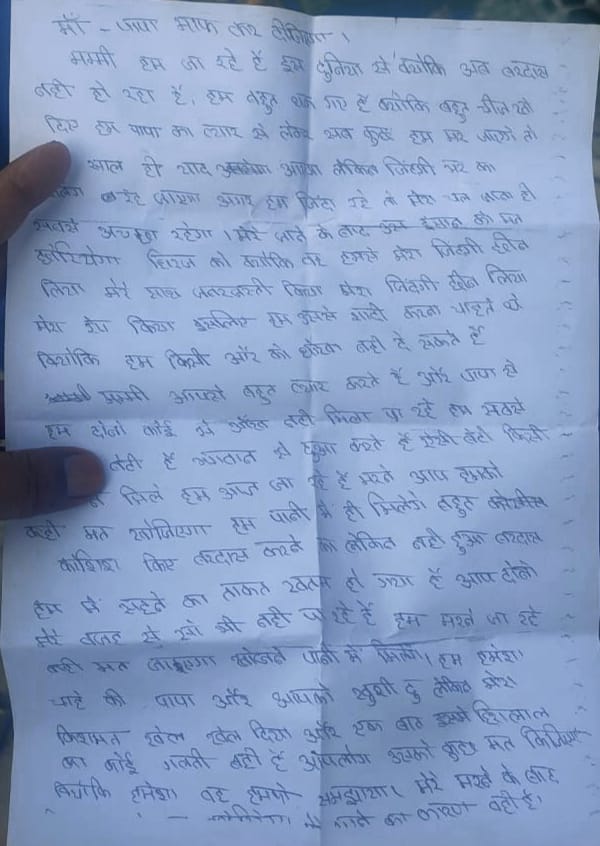 माँ - पापा माफ कर दीजिएगा।
मम्मी हम जा रहे हैं इस दुनिया से क्योंकि अब बरदास
नही हो रहा है, हम बहुत थक गए हैं क्योंकि बहुत
दिए हम पापा का प्यार से लेकर सब कुछ हम मर जाएंगे तो
साल ही याद आएगा लेकिन जिंदगी भर का
जाएगा अगर हम जिंदा रहे तो मेरा मर जाना ही
सबसे अच्छा रहेगा। मेरे जाने के बाद उस इंसान को मत
को क्योंकि वह हमसे मेरा जिंदगी छीन
लिया मेरे साथ जबरजस्ती किया मेरा जिंदगी छीन लिया
मेरा रेप किया इसलिए हम उससे शादी करना चाहते थे
क्योंकि हम किसी और को धोखा नही दे सकते हैं
मम्मी आपसे बहुत प्यार करते हैं और पापा से
हम दोनो कोई से आँख नही मिला पा रहे हम सबसे
बेटी हैं भगवान से दुआ करते हैं ऐसी बेटी किसी
न मिले हम आज जा रहे हैं मरने आप हमको
कही मत खोजिएगा हम पानी में ही मिलेंगे बहुत
कोशिश किए बरदास करने का लेकिन नही हुआ बरदास
हम में सहने का ताकत खतम हो गया है आप दोनो
मेरे वजह से खो भी नही पा रहे हैं हम मरने जा रहे
कही मत जाइएगा खोजने पानी में मिलेंगे। हम हमेशा
चाहे की पापा और आपको खुशी दु लेकिन मेरा
किसमत खेल खेल दिया और एक बात इसमे
का कोई गलती नही है आपलोग उसको कुछ मत किजिएगा
क्योंकि हमेशा वह हमको समझाया। मेरे मरने के बाद
मेरे मरने का कारण वही है।